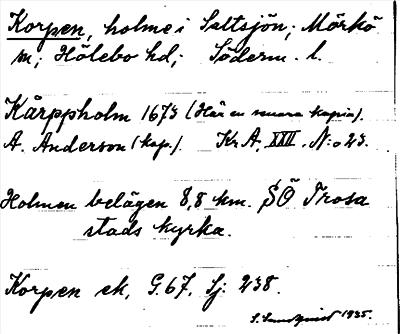 Korpen, holme i Saltsjön; Mörkö
sn; Hölebo hd; Söderm. l.
Kårppholm 1675 (Här en senare kopia).
A. Anderson (kop.). Kr. A. XXII. N:o 23.
Holmen belägen 8,8 km. SÖ Trosa
stads kyrka.
Korpen ek, G. 67, Sj: 238.
S. Sundquist 1935.